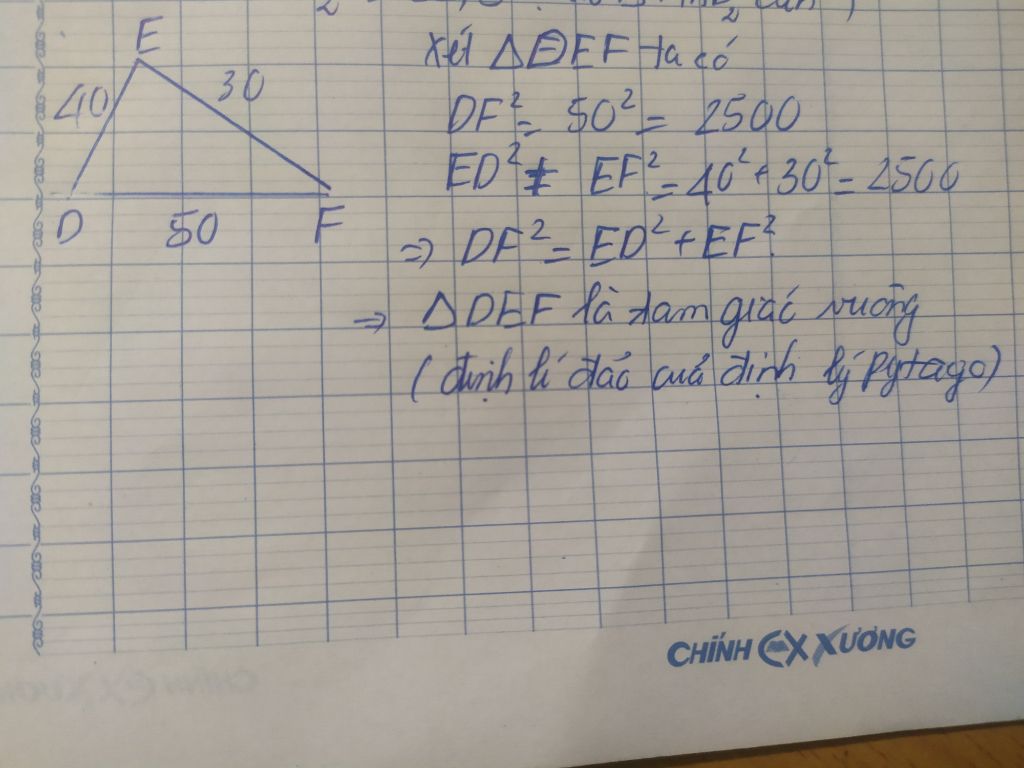 E
40
30
D
50
F
Xét ΔDEF ta có
DF² = 50² = 2500
ED² + EF² = 40² + 30² = 2500
⇒ DF² = ED² + EF²
⇒ ΔDEF là tam giác vuông
(định lí đảo của định lý Pytago)
CHÍNH XƯƠNG